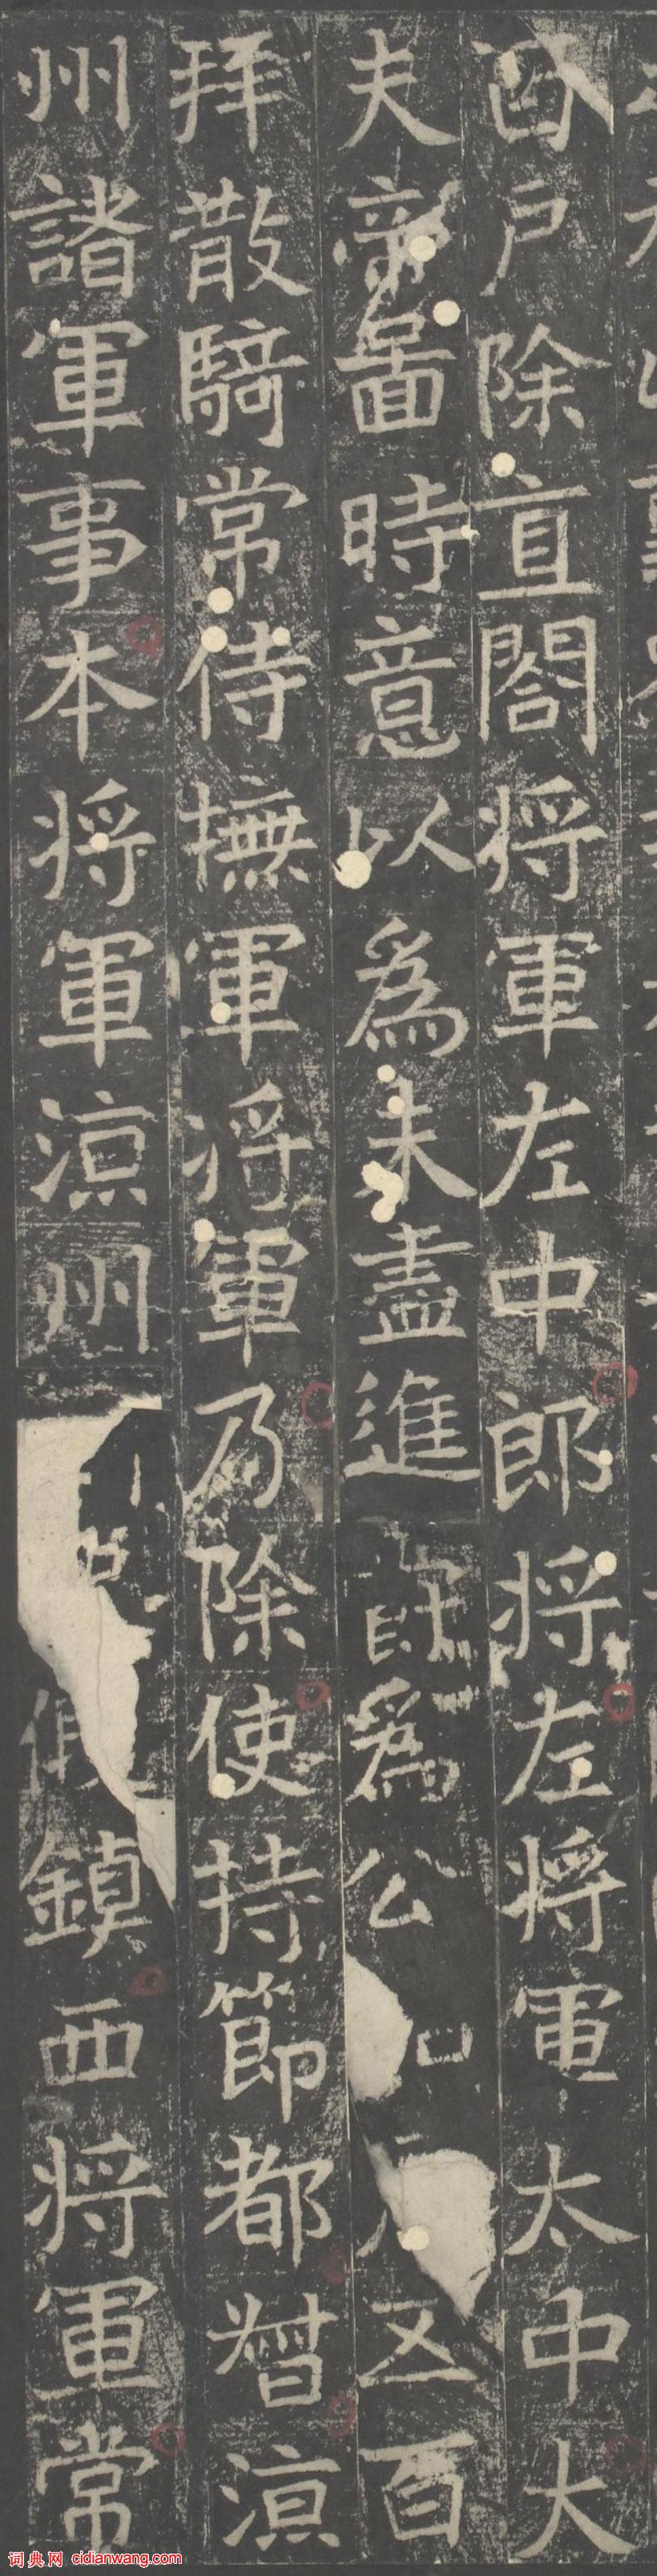 百戶除直閤將軍左中郎將左將軍太中大
夫帝圖時意以為未盡進爵為公五百
拜散騎常侍撫軍將軍乃除使持節都督涼
州諸軍事本將軍涼州假鎮西將軍常
词典网 cidianwang.com